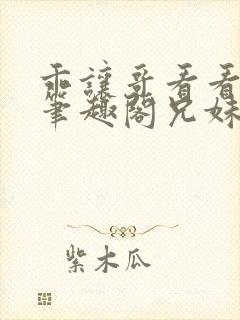 乖让哥看看
笔趣阁兄妹
紫木瓜